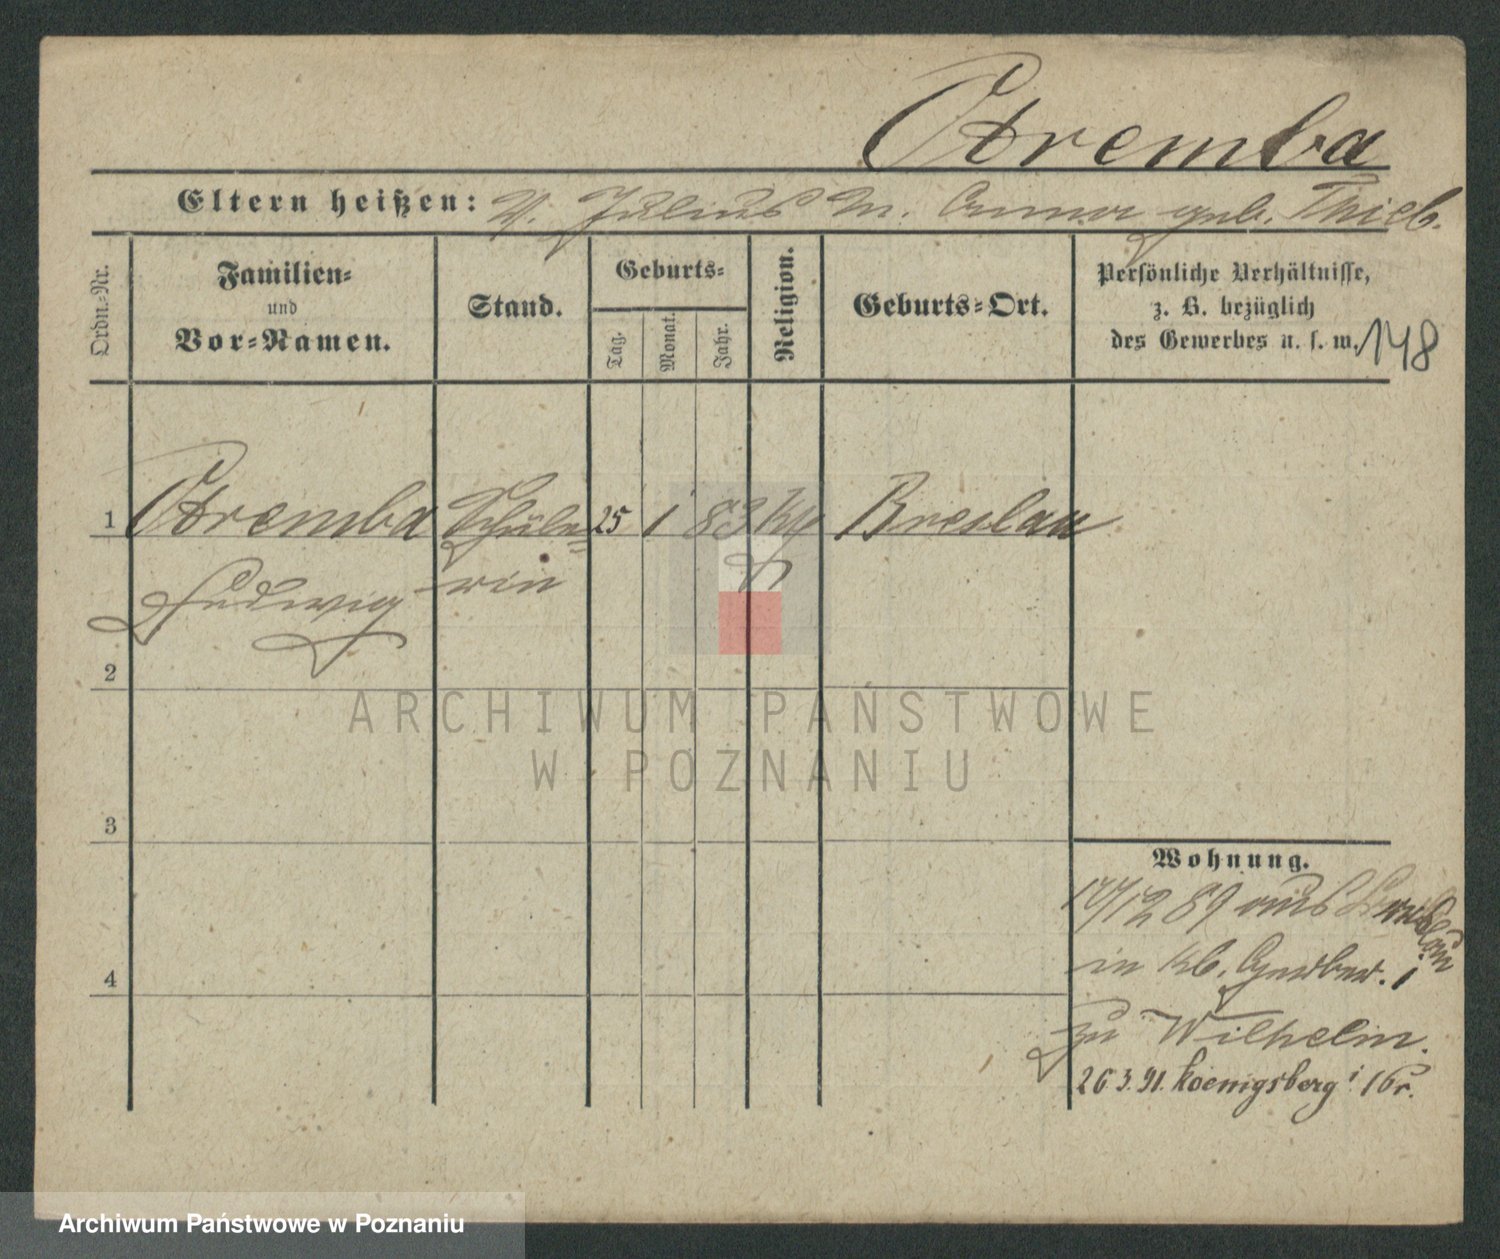 Otremba
Eltern heißen: V. Julius M. Anna geb. Thieb.
Ordn.-Nr.
Familien-
und
Vor-Namen.
Stand.
Geburts-
Tag.
Monat.
Jahr.
Religion.
Geburts-Ort.
Persönliche Verhältnisse,
z. B. bezüglich
des Gewerbes u. s. w.
148
1 Otremba Schüle- 25 1 83 kth Breslau
Ludwig rin
2
3
4
Wohnung.
17/12 89 aus Breslau
in kl. Gerber. 1
zu Wilhelm.
26 3. 91. Koenigsberg i/Pr.
ARCHIWUM PAŃSTWOWE
W POZNANIU
Archiwum Państwowe w Poznaniu